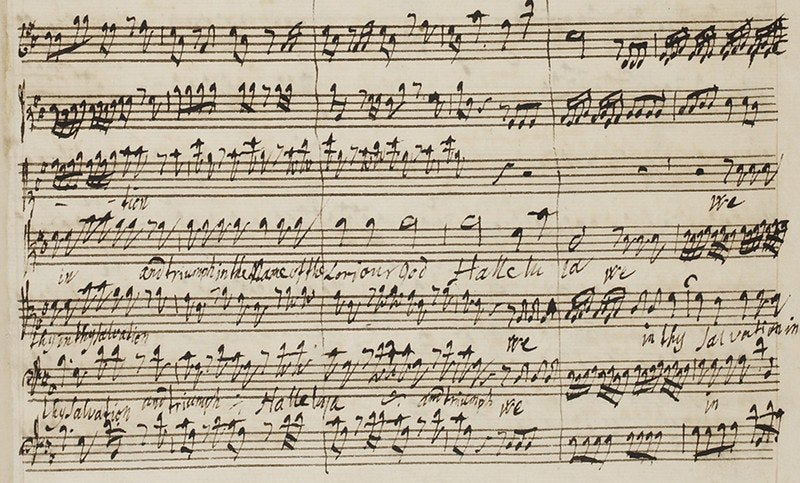 - - tion we
in and triumph in the Name of the Lord our God Hallelu ia we
thy in thy salvation we in thy salvation in
thy salvation and triumph Halleluja and triumph we in